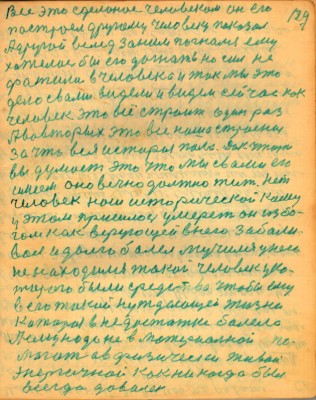 129
Все это сделоное человеком он его
построел другому человеку показал
А другой вслед заним погнался ему
хотелос бы его догнать но сил не
фатило в человека и так мы это
дело свами видели и видем сейчас как
человек это всё строит один раз
Авовторых это все наше строения
За что вся история
вы думаете это что мы свами его
имеем оно вечно должно жит. Нет
человек наш исторической кому
и этом пришлос умерет он избо-
гом как верующей внего забали-
вал и долго болел мучился унас
не находился такой человек уко-
торого были средства чтобы ему
в его такой нуждающей жизни
Которая в недостатке болело
Ему надо не в матерьялной по-
могат а в физически живой
энергичной как никогда был
всегда доволен